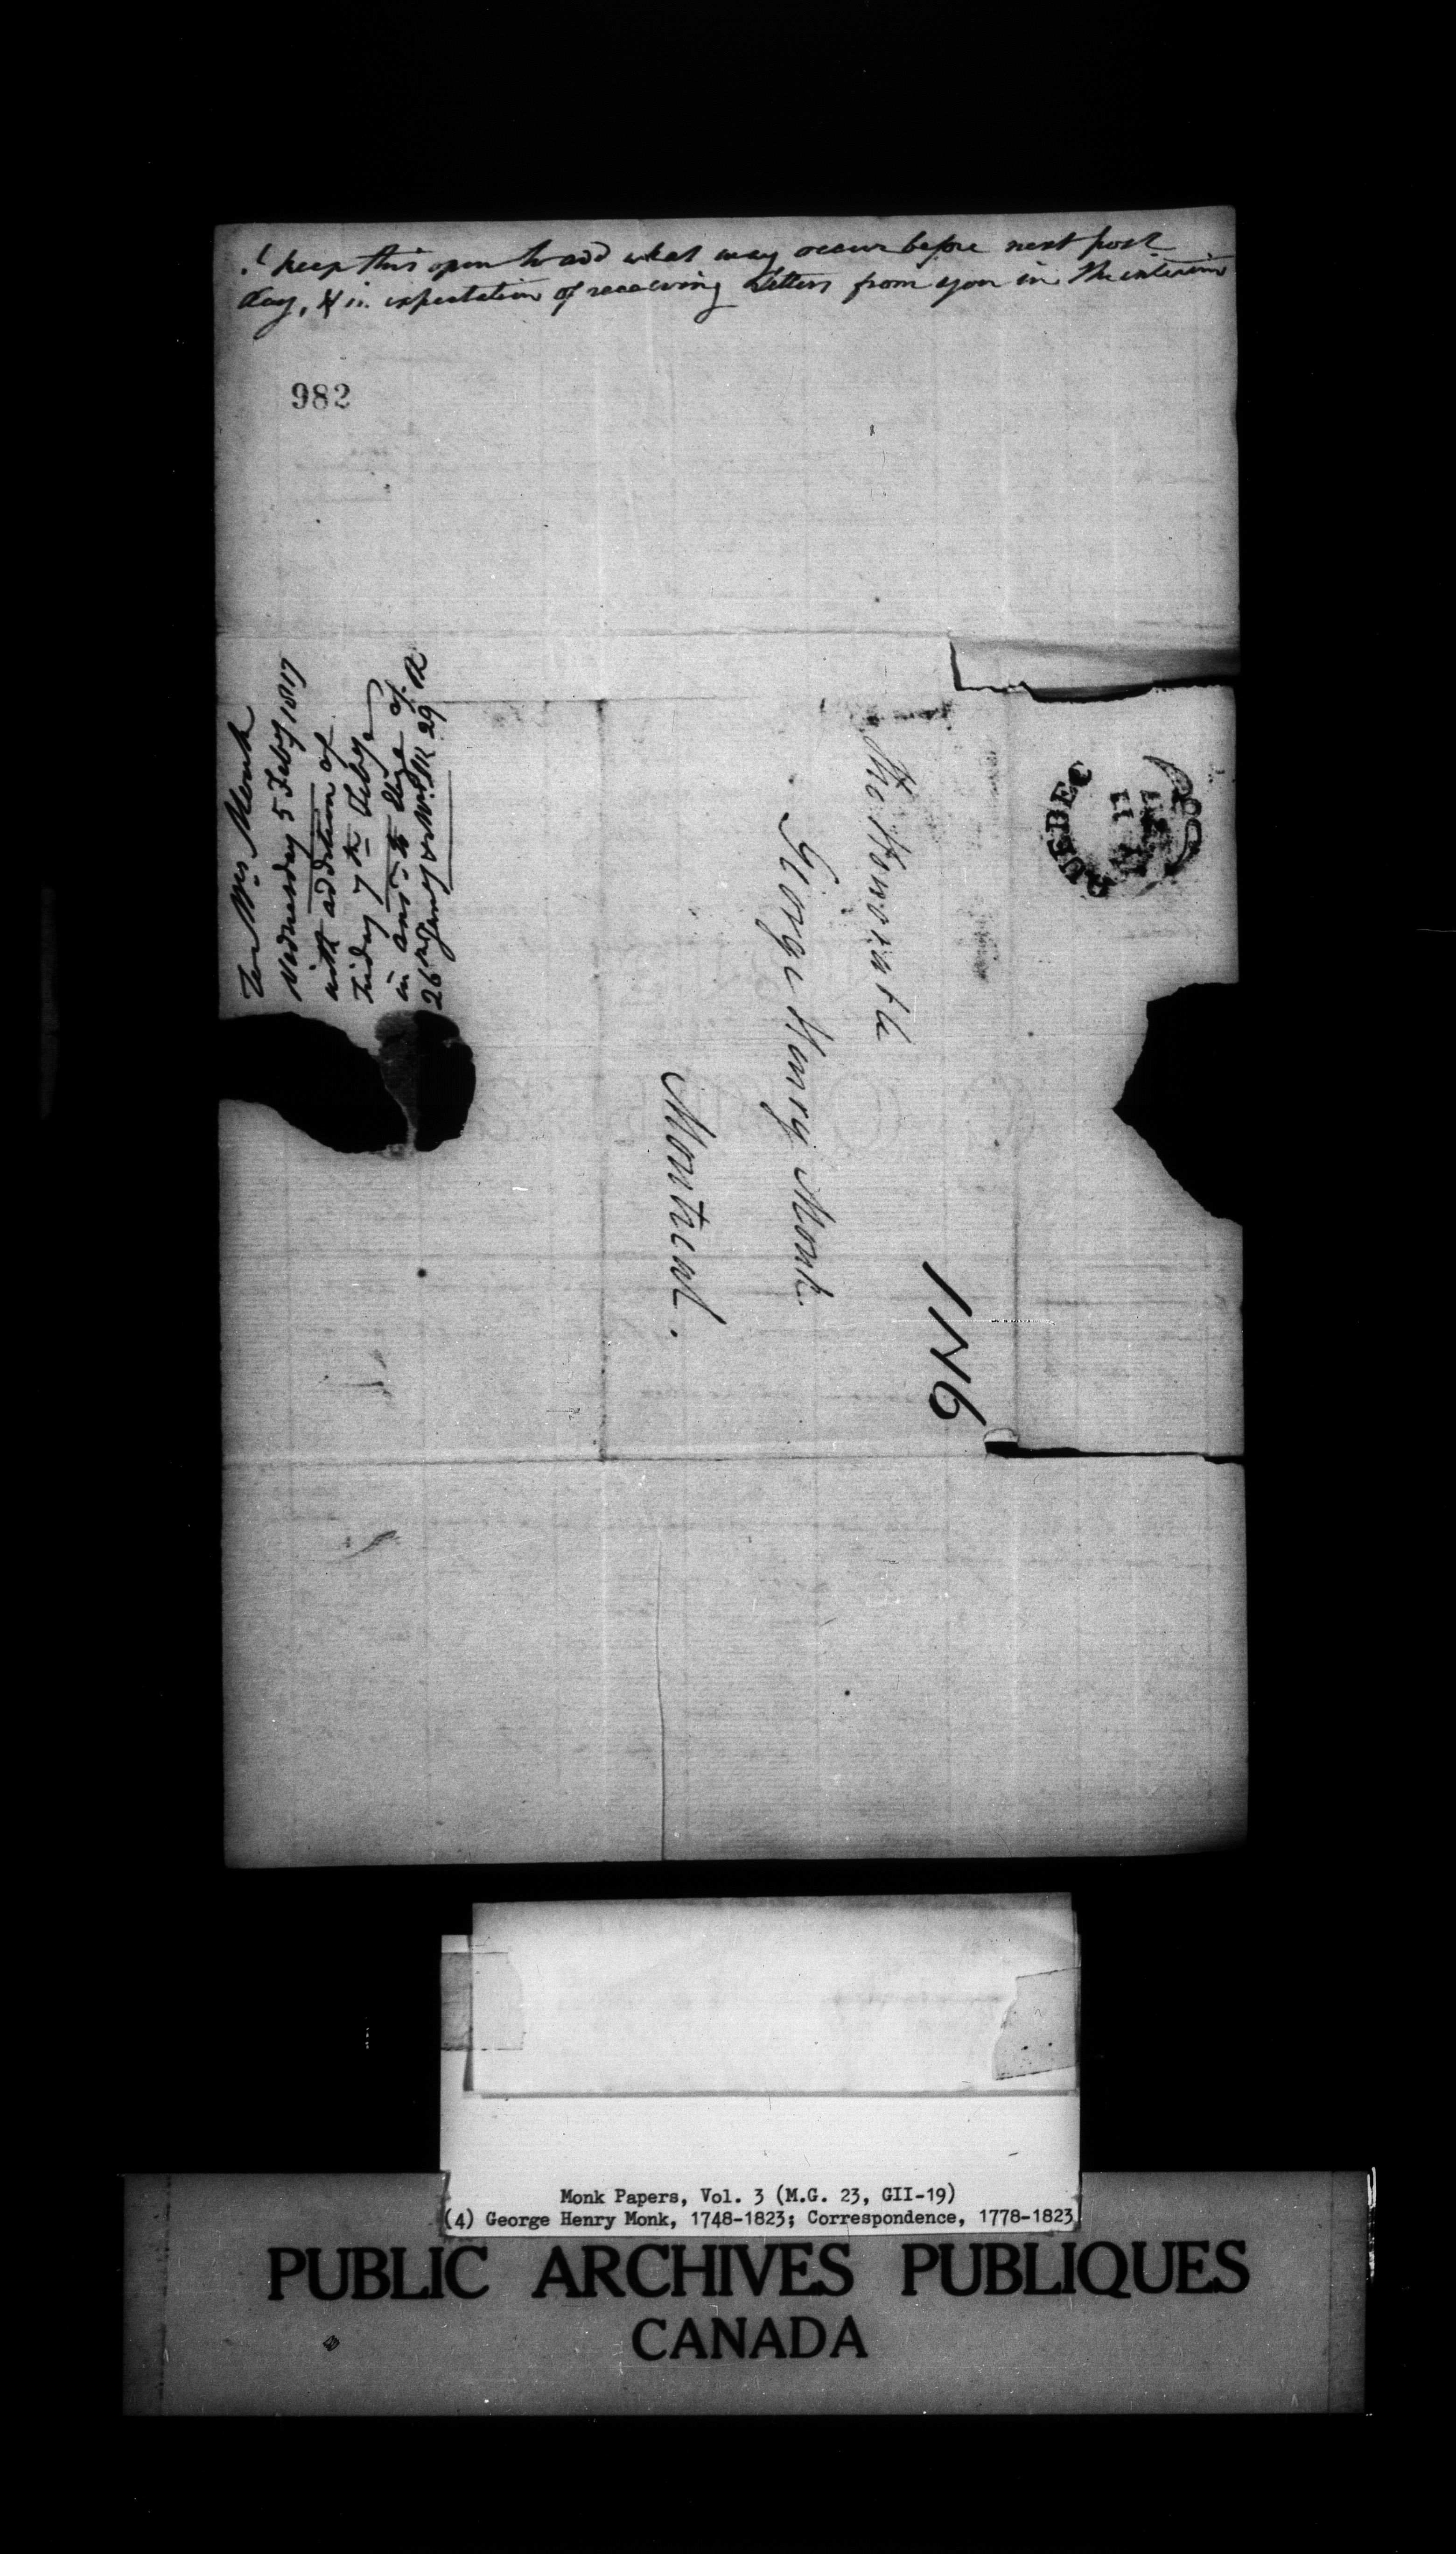 I keep this open to add what may occur before next post
day, & in expectation of receiving letters from you in the interim
982
Mrs Monk
Wednesday 5 Feby 1817
with addition of
Friday 7th Feby
in ansr to Eliza of
26th Jany & Mrs M 29th
The Honorable
George Henry Monk
Montreal.
QUEBEC
1 N 6
Monk Papers, Vol. 3 (M.G. 23, GII-19)
(4) George Henry Monk, 1748-1823; Correspondence, 1778-1823
PUBLIC ARCHIVES PUBLIQUES
CANADA